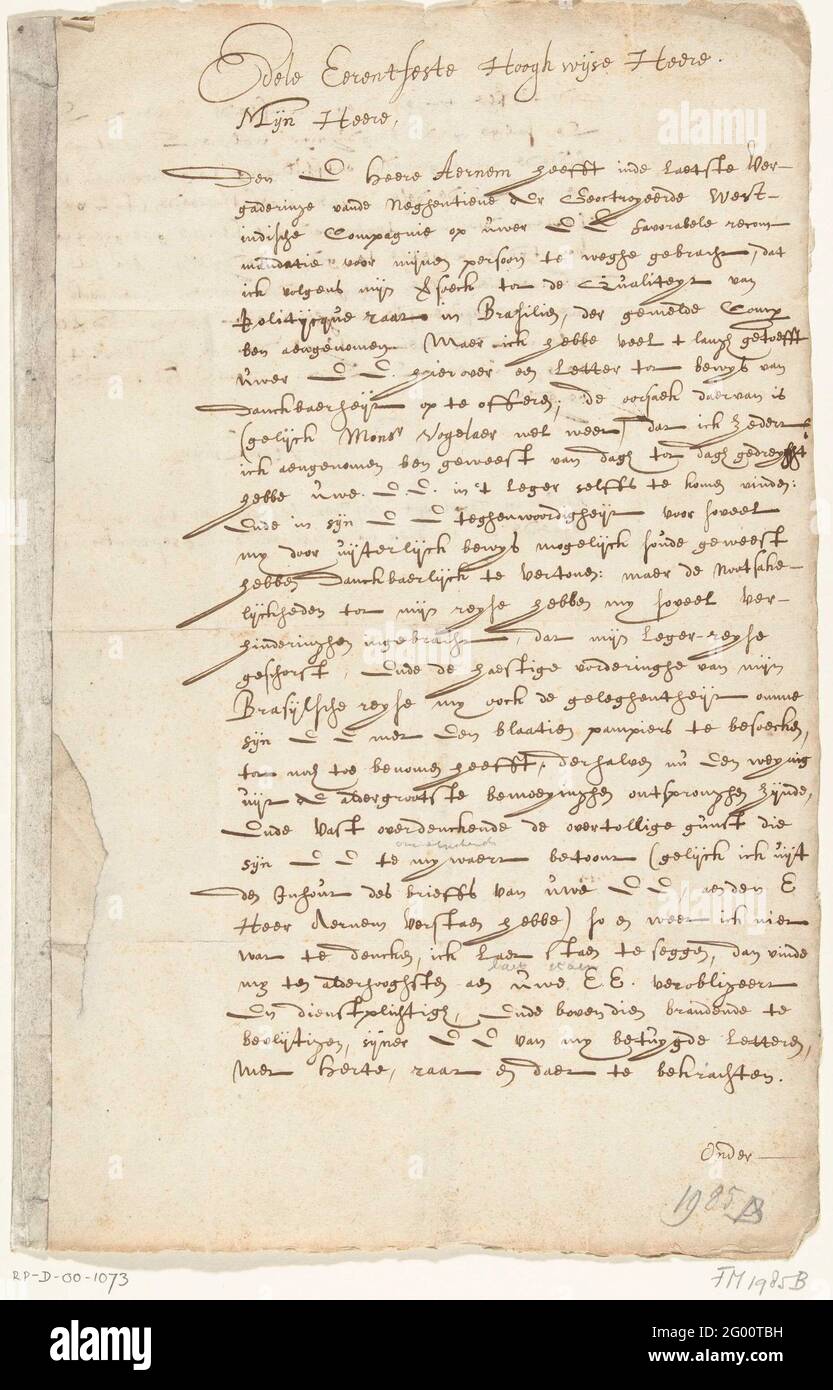 Edele Eerentfeste Hoogh wijse Heere.
Mijn Heere,
Den E Heere Aernem heefft inde laetste Ver-
gaderinge vande Neghentiene der Geoctroyeerde West-
indische Compagnie op uwer E E favorabele recom
mandatie voor mijnen persoon te weghe gebracht, dat
ick volgens mijn versoeck tot de Qualiteyt van
Politijcque raat in Brasilien, der gemelde Comp
ben aengenomen. Maer ick hebbe veel t langh getoefft
uwer E E. hier over een letter tot bewys van
Danckbaerheyt op te offeren; de oorsaek daervan is
(gelijck Monsr Vogelaer wel weet) dat ick zedert
ick aengenomen ben geweest van dagh tot dagh gedreyght
hebbe uwe. E. E. in 't leger selffs te komen vinden:
Ende in sijn E E teghenwoordigheyt voor soveel
my door uijterlijck bewys mogelijck soude geweest
hebben Danckbaerlijck te vertonen: maer de Nootsake-
lijckheden tot mijn reyse hebben my soveel ver-
hinderinghen ingebracht, dat mijn leger-reyse
geschorst, Ende de haestige vorderinghe van mijn
Brasijlsche reyse my oock de geleghentheyt omme
sijn E E met den blaatien pampiers te besoecken,
tot noch toe benomen heefft, derhalven nu den weynig
uijt de aldergrootste bemoeyinghen ontspronghen zijnde,
Ende vast overdenckende de overtollige gunst die
sijn E E te mywaert betoont (gelijck ick uijt
den Inhout des brieffs van uwe E E aenden E
Heer Aernem verstaen hebbe) so en weet ick niet
wat te dencken, ick laet staen te seggen, dan vinde
laet staen
my ten alderhooghsten aen uwe E.E. verobligeert
En dienstplichtigh, Ende boven dien brandende te
bevlijtigen, sijner E E van my betuygde letteren,
Met herte, raat en daet te bekrachten.
Onder
1985 B
RP-D-00-1073
FM 1985 B
alamy
Image ID: 2G00TBH
www.alamy.com